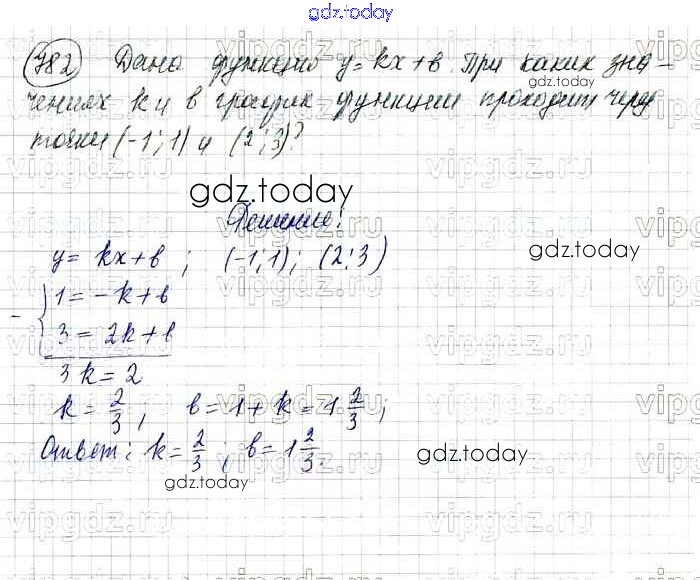 gdz.today
782 Дана функция y=kx+b. При каких зна-
чениях k и b график функции проходит через
точки (-1;1) и (2;3)?
gdz.today
Решение:
y= kx+b ; (-1;1); (2;3)
1=-k+b
- { 3= 2k+b
3k=2
k= 2/3 ; b=1+k=1 2/3 ;
Ответ: k= 2/3 ; b=1 2/3.
gdz.today